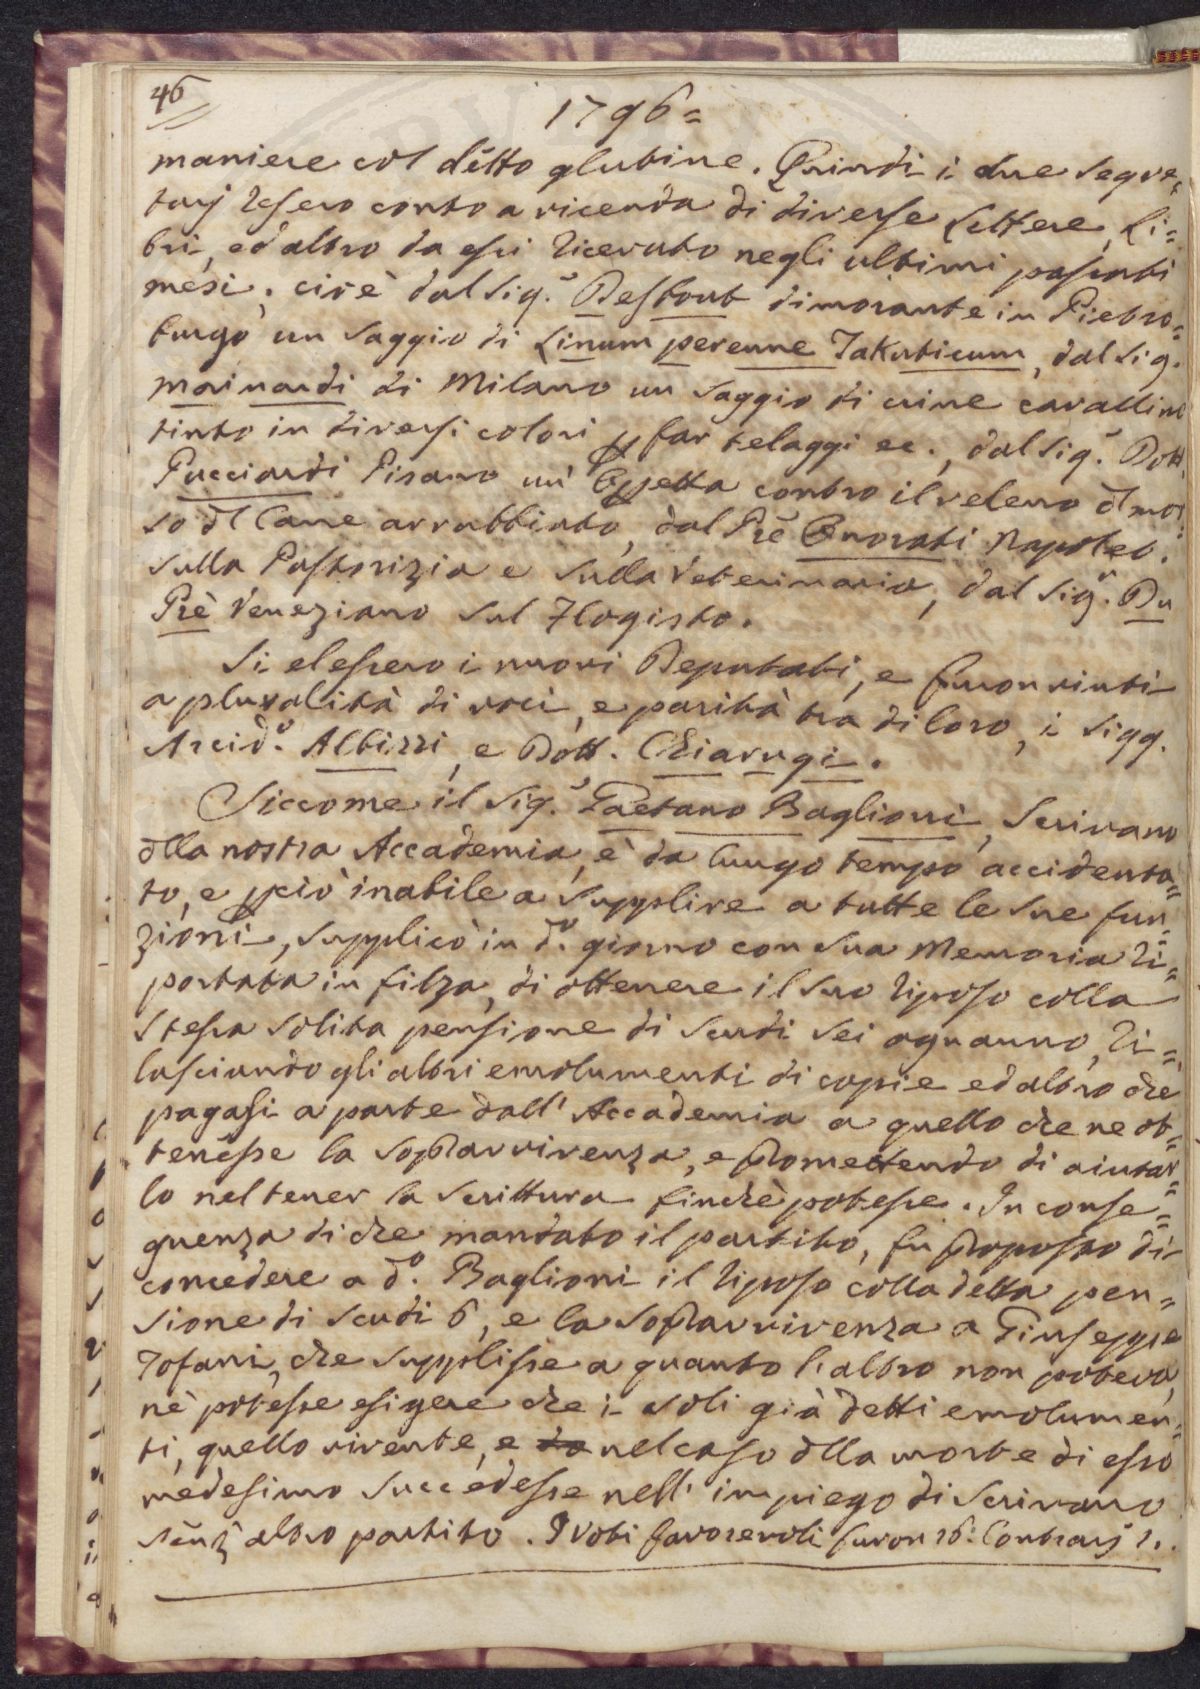 46
1796=
maniere col detto glutine. Quindi i due segre=
tarj resero conto a vicenda di diverse Lettere, Li=
bri, ed altro da essi ricevuto negli ultimi passati
mesi; cioè dal Sig.r Destout dimorante in Pietro=
burgo un saggio di Linum perenne Jakuticum, dal Sig.
Mainardi di Milano un saggio di crine cavallino
tinto in diversi colori p far telaggi ec., dal Sig.r Dott.
Pucciardi Pisano un' Opetta contro il veleno dl mor=
so dl Cane arrabbiato, dal Prè Onorati Napolet.
sulla Pastorizia e sulla Veterinaria, dal Sig.r Du
Prè Veneziano sul Flogisto.
Si elessero i nuovi Deputati, e furon vinti
a pluralità di voci, e parità tra di loro, i Sigg.
Arcid.o Albizzi, e Dott. Chiarugi.
Siccome il Sig.r Gaetano Baglioni, Scrivano
dlla nostra Accademia, è da lungo tempo accidenta=
to, e pciò inabile a supplire a tutte le sue fun=
zioni, supplicò in d.o giorno con sua Memoria ri=
portata in filza, di ottenere il suo riposo colla
stessa solita pensione di scudi sei ogn anno, ri=
lasciando gli altri emolumenti di copie ed altro che
pagasi a parte dall' Accademia a quello che ne ot=
tenesse la sopravvivenza, e promettendo di aiutar=
lo nel tener la scrittura finchè potesse. In conse=
guenza di che mandato il partito, fu proposto di
concedere a d.o Baglioni il riposo colla detta pen=
sione di scudi 6, e la sopravvivenza a Giuseppe
Tofani, che supplisse a quanto l'altro non poteva,
nè potesse esigere che i soli già detti emolumen=
ti, quello vivente, e nel caso dlla morte di esso
medesimo succedesse nell' impiego di Scrivano
senz' altro partito. I voti favorevoli furon 16: Contrarj 1.